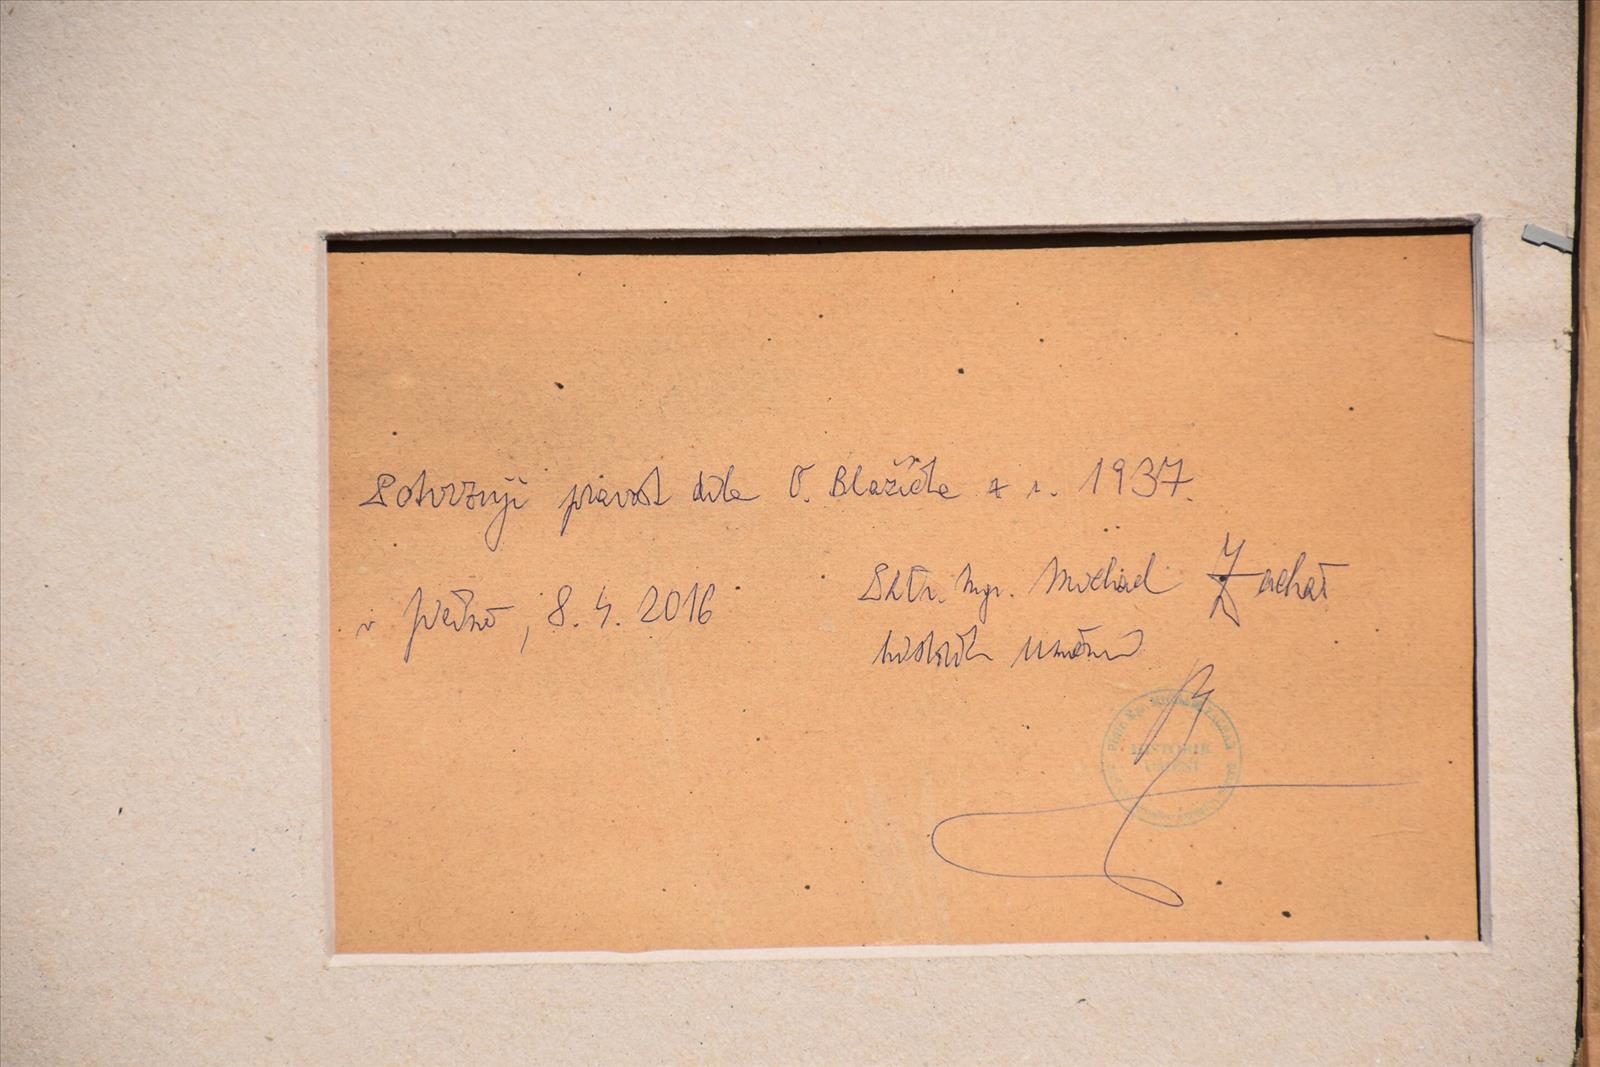 Potvrzuji pravost díla O. Blažíčka z r. 1937.
PhDr. Mgr. Michael Zachař
v , 8. 4. 2016
historik umění
HISTORIK
UMĚNÍ